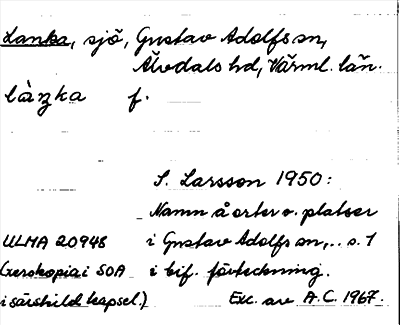 Lanka, sjö, Gustav Adolfs sn,
Älvdals hd, Värml. län.
làŋka f.
S. Larsson 1950:
Namn å orter o. platser
ULMA 20948 i Gustav Adolfs sn,.. s. 1
(xerokopia i SOA i bif. förteckning.
i särskild kapsel.) Exc. av A.C. 1967.